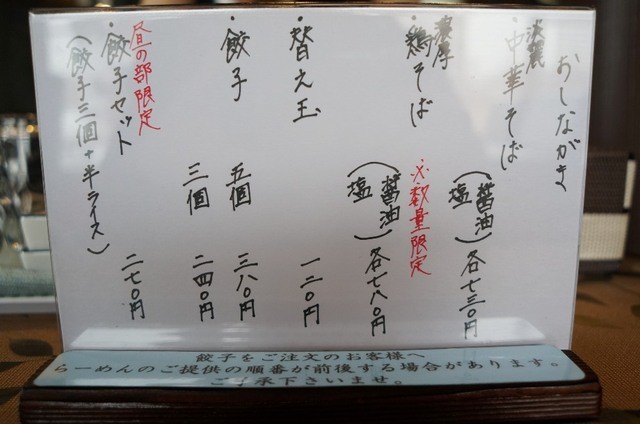 おしながき
淡麗
・中華そば
(醤油
塩) 各七三〇円
濃厚
・鶏そば
※数量限定
(醤油
塩) 各七八〇円
・替え玉 一二〇円
・餃子 五個 三八〇円
三個 二四〇円
昼の部限定
・餃子セット 二七〇円
(餃子三個+半ライス)
餃子をご注文のお客様へ
らーめんのご提供の順番が前後する場合があります。
ご了承下さいませ。